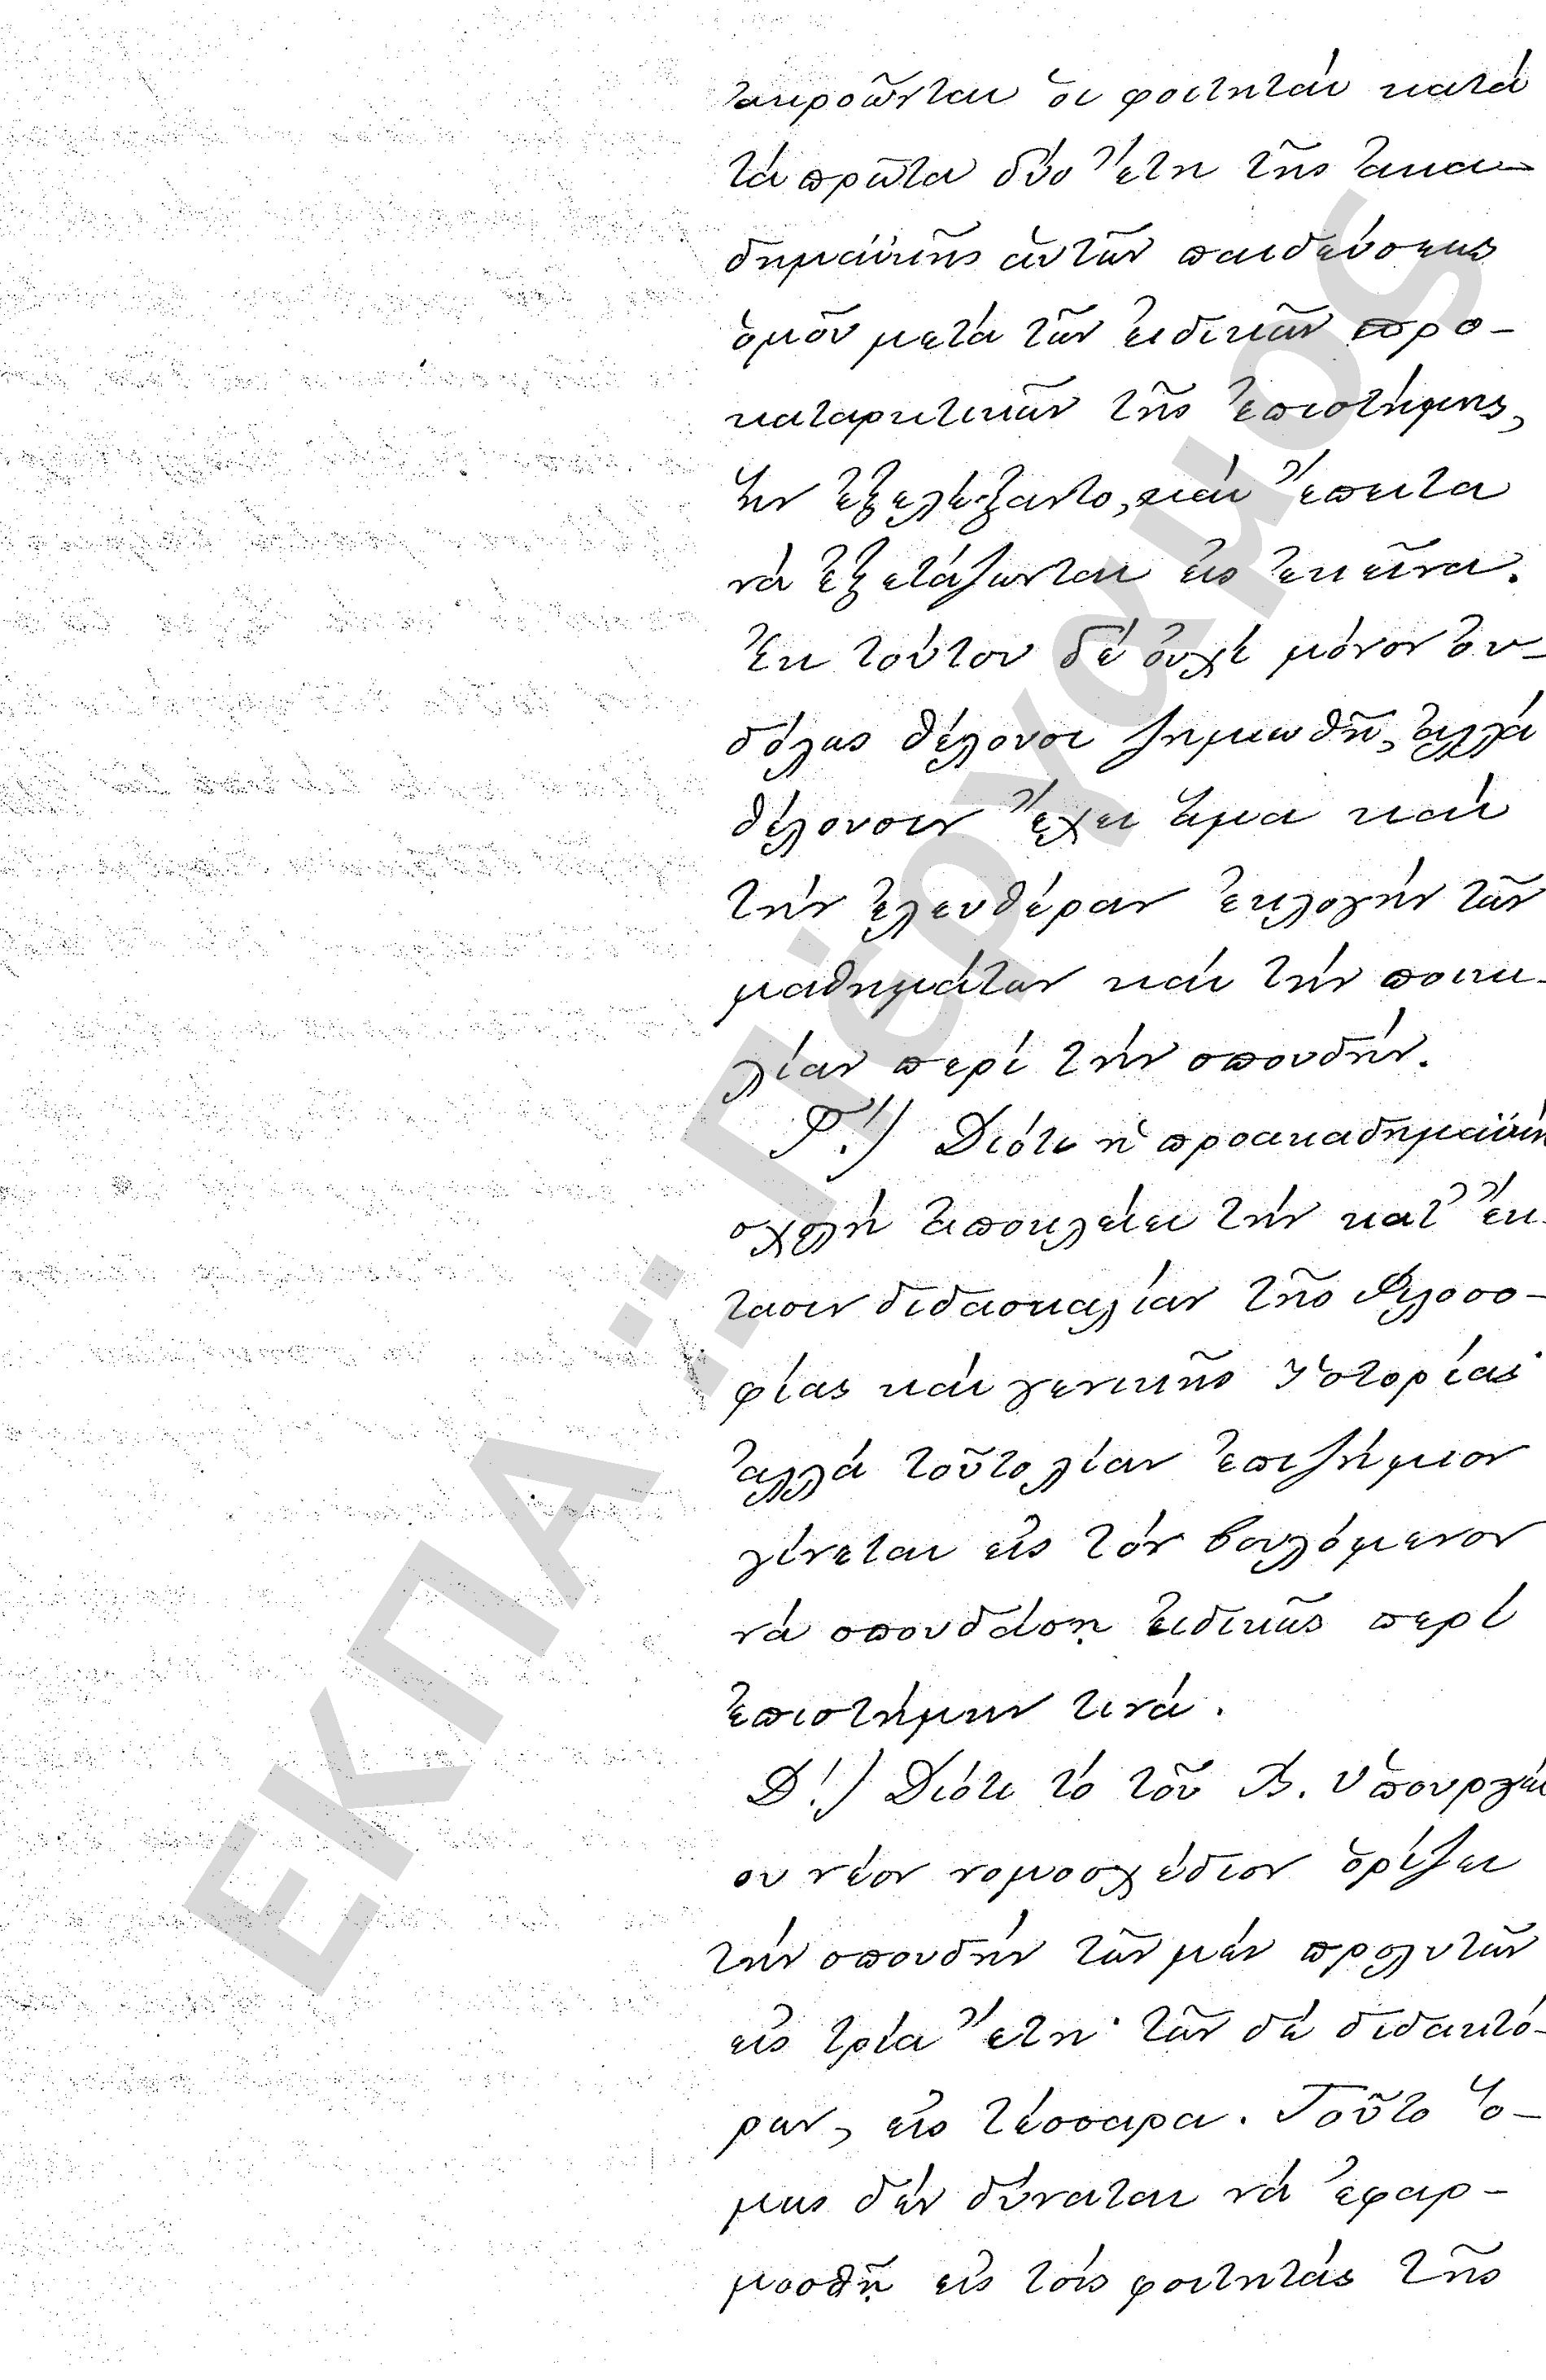 ἀκροῶνται ὁι φοιτητάι κατά
τά πρῶτα δύο ἔτη τῆς ἀκα-
δημαϊκῆς ἀυτῶν παιδεύσεως
ὁμοῦ μετά τῶν ἐιδικῶν προ-
καταρκτικῶν τῆς ἐπιστήμης,
ἣν ἐξελέξαντο, κάι ἔπειτα
νά ἐξετάζωνται ἐις ἐκεῖνα.
Ἐκ τούτου δέ ὀυχί μόνον ὀυ-
δόλως θέλουσι ζημιωθῆ, ἀλλά
θέλουσιν ἔχει ἅμα κάι
τήν ἐλευθέραν ἐκλογήν τῶν
μαθημάτων κάι τήν ποικι-
λίαν περί τήν σπουδήν.
Γ'.) Διότι ἡ προακαδημαϊκή
σχολή ἀποκλείει τήν κατ' ἔκ-
τασιν διδασκαλίαν τῆς Φιλοσο-
φίας κάι γενικῆς Ἱστορίας·
ἀλλά τοῦτο λίαν ἐπιζήμιον
γίνεται ἐις τόν βουλόμενον
νά σπουδάσῃ ἐιδικῶς περί
ἐπιστήμην τινά.
Δ'.) Διότι τό τοῦ Β. Ὑπουργεί
ου νέον νομοσχέδιον ὁρίζει
τήν σπουδήν τῶν μέν προλυτῶν
ἐις τρία ἔτη· τῶν δέ διδακτό-
ρων, ἐις τέσσαρα. Τοῦτο ὅ-
μως δέν δύναται νά ἐφαρ-
μοσθῇ ἐις τούς φοιτητάς τῆς
ΕΚΠΑ :: Πέργαμος